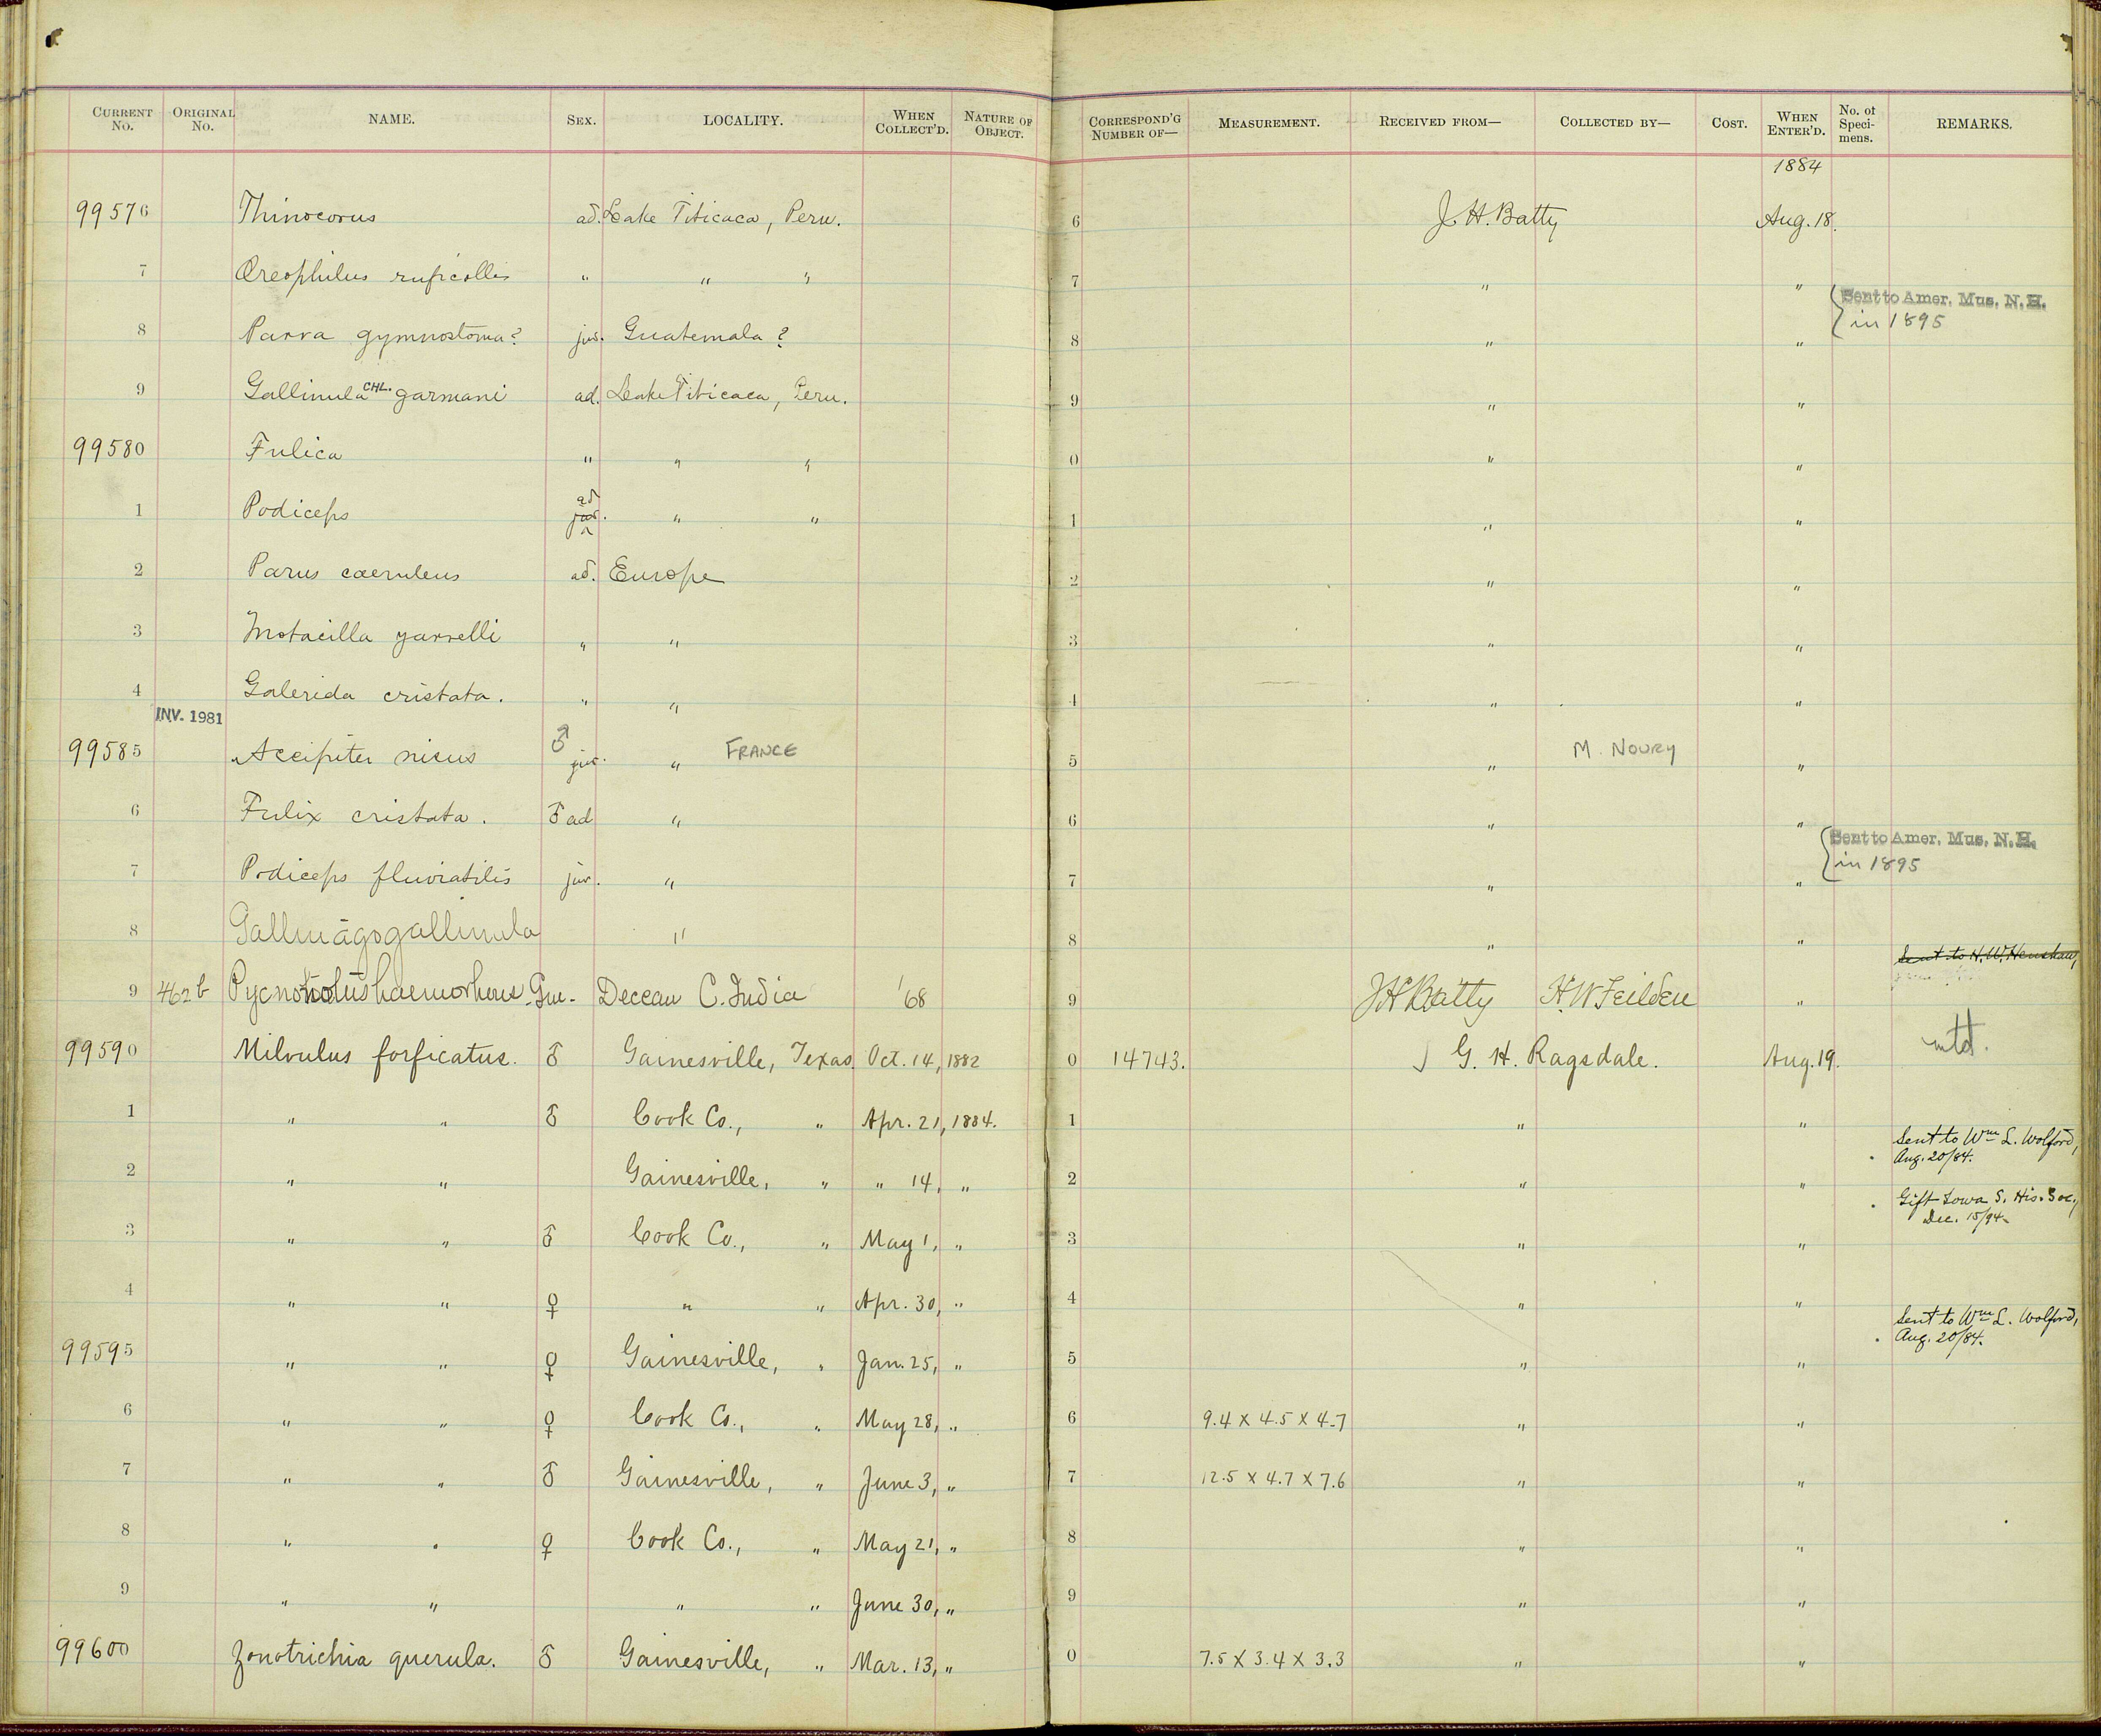 CURRENT No. ORIGINAL No. NAME. SEX. LOCALITY. WHEN COLLECT'D. NATURE OF OBJECT. CORRESPOND'G NUMBER OF— MEASUREMENT. RECEIVED FROM— COLLECTED BY— COST. WHEN ENTER'D. No. of Speci-mens. REMARKS.
1884
99576 Thinocorus ad. Lake Titicaca, Peru. 6 J. H. Batty Aug. 18.
7 Oreophilus ruficollis " " " 7 " "
Sent to Amer. Mus. N. H.
in 1895
8 Parra gymnostoma? juv. Guatemala? 8 " "
9 Gallinula CHL. garmani ad. Lake Titicaca, Peru. 9 " "
99580 Fulica " " " 0 " "
1 Podiceps ad juv. " " 1 " "
2 Parus caeruleus ad. Europe 2 " "
3 Motacilla yarrelli " " 3 " "
4 Galerida cristata. " " 4 " "
INV. 1981
99585 Accipiter nisus ♂ juv. " FRANCE 5 " M. NOURY "
6 Fulix cristata. ♂ ad " 6 " "
Sent to Amer. Mus. N. H.
in 1895
7 Podiceps fluviatilis juv. " 7 " "
8 Gallinago gallinula " 8 " "
Sent to H. W. Henshaw,
9 462b Pycnonotus haemorhous Gm- Deccan C. India '68 9 J H Batty H. W Feilden "
99590 Milvulus forficatus. ♂ Gainesville, Texas. Oct. 14, 1882 0 14743. G. H. Ragsdale. Aug. 19. mtd.
1 " " ♂ Cook Co., " Apr. 21, 1884. 1 " "
Sent to Wm L. Wolford,
Aug. 20/84.
2 " " Gainesville, " " 14, " 2 " "
Gift Iowa S. His. Soc,
Dec. 15/94.
3 " " ♂ Cook Co., " May 1, " 3 " "
4 " " ♀ " " Apr. 30, " 4 " "
Sent to Wm L. Wolford,
Aug. 20/84.
99595 " " ♀ Gainesville, " Jan. 25, " 5 " "
6 " " ♀ Cook Co., " May 28, " 6 9.4 X 4.5 X 4.7 " "
7 " " ♂ Gainesville, " June 3, " 7 12.5 X 4.7 X 7.6 " "
8 " " ♀ Cook Co., " May 21, " 8 " "
9 " " " " June 30, " 9 " "
99600 Zonotrichia querula. ♂ Gainesville, " Mar. 13, " 0 7.5 X 3.4 X 3.3 " "